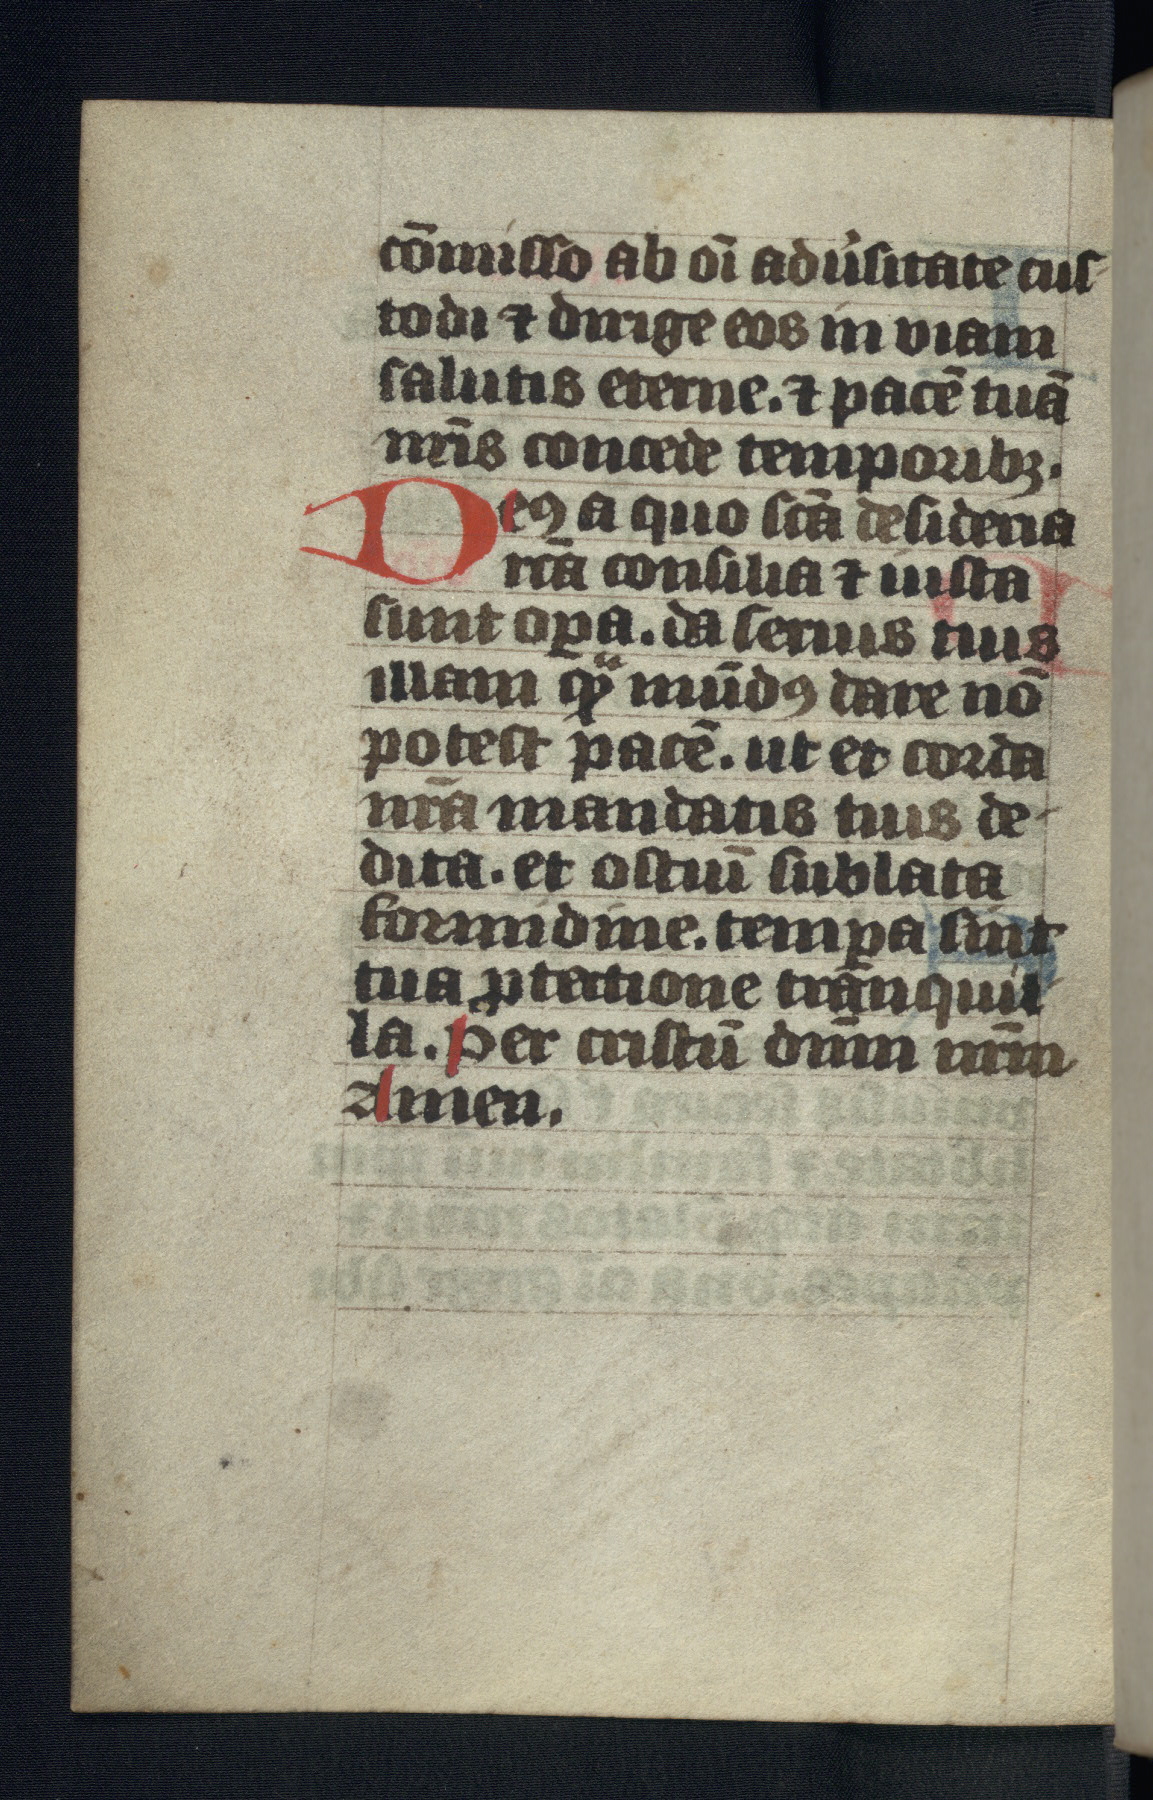 cōmisso ab oī adu͛sitate cus-
todi ⁊ dirige eos in viam
salutis eterne. ⁊ pacē tuā
nr̄is concede temporibꝫ.
Deꝯ a quo sc̄a desideria
rc̄a consilia ⁊ iusta
sunt oꝑa. da seruis tuis
illam qͣ mūdꝯ dare nō
potest pacē. ut et corda
nr̄a mandatis tuis de-
dita. et ostiuī sublata
formidine. temꝑa sint
tua ꝓtectione trānquil-
la. Per cristū dn̄m nr̄m
Amen.